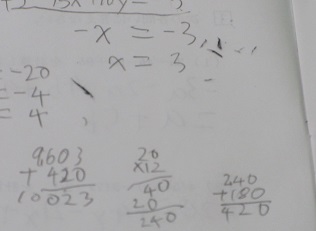 -x = -3
x = 3
= -20
= -4
= 4
9,603
+ 420
10023
20
x12
40
20
240
240
+180
420